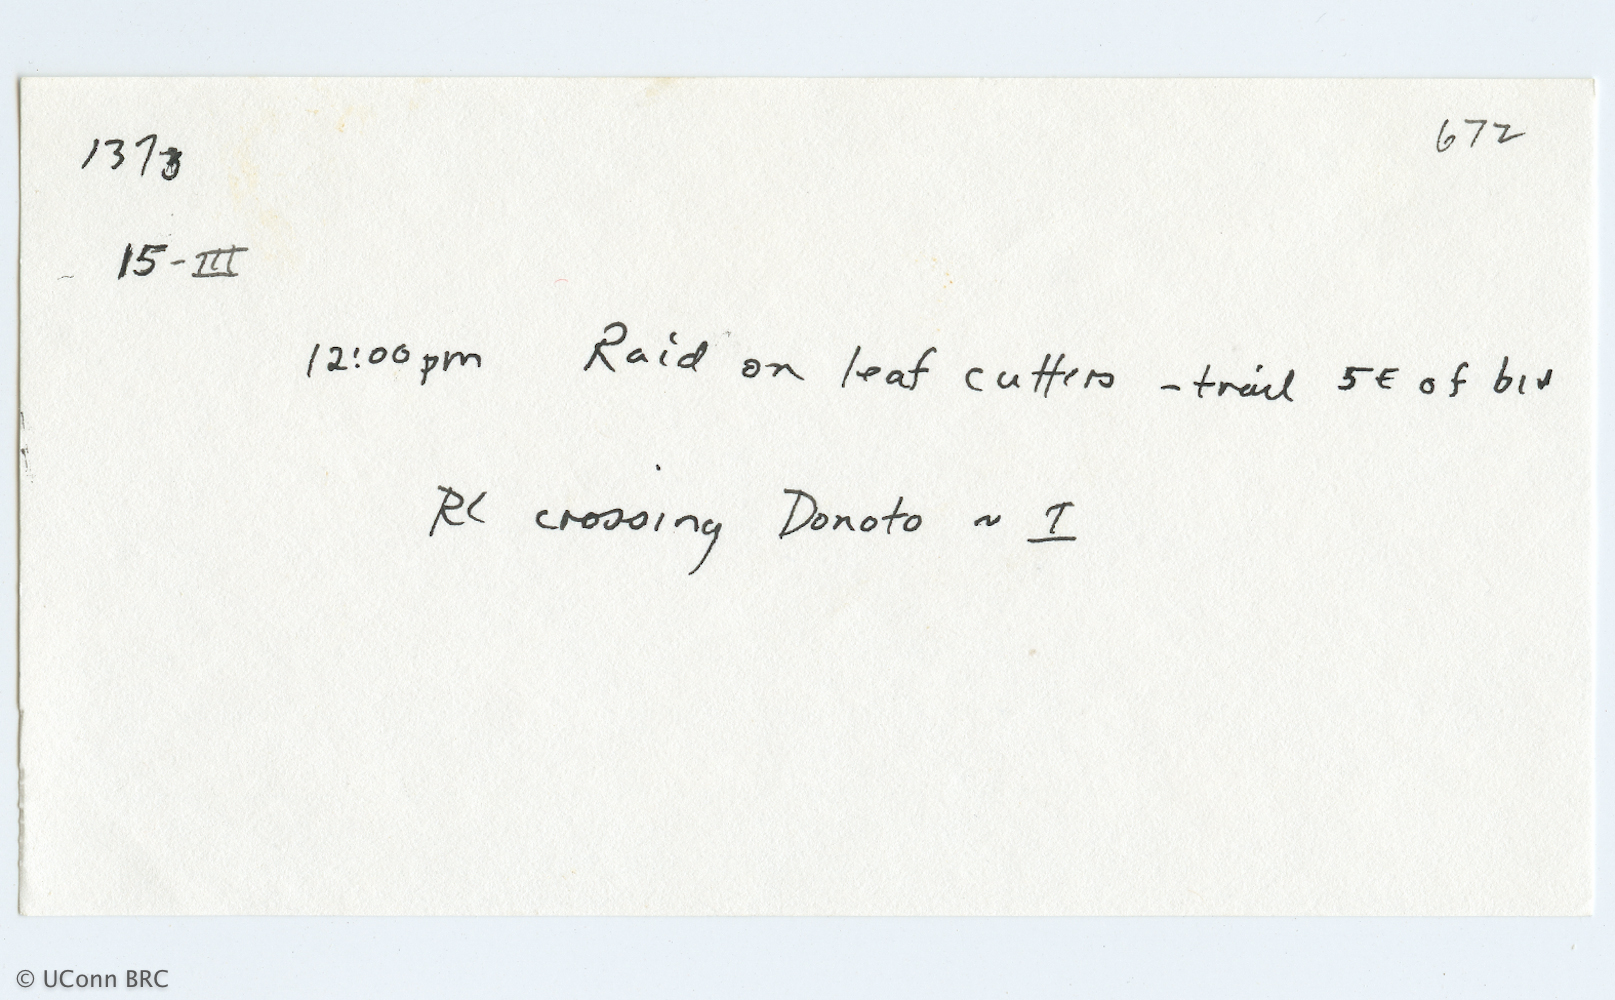 1373
672
15-III
12:00pm Raid on leaf cutters - trail SE of biv
RC crossing Donato ~ I
© UConn BRC